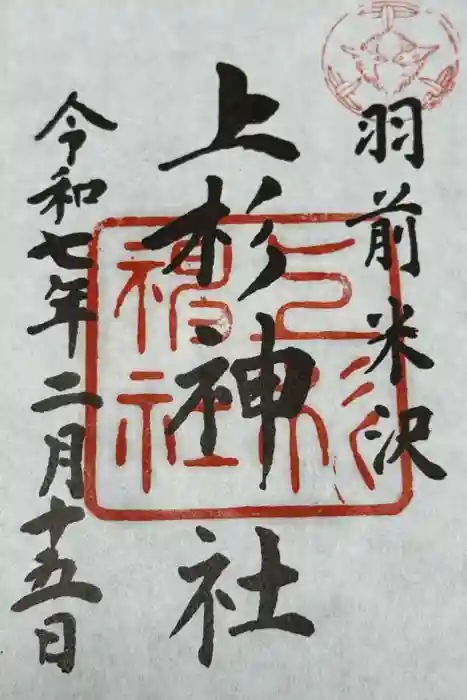 羽前米沢
上杉神社
令和七年二月十五日
上杉
神社